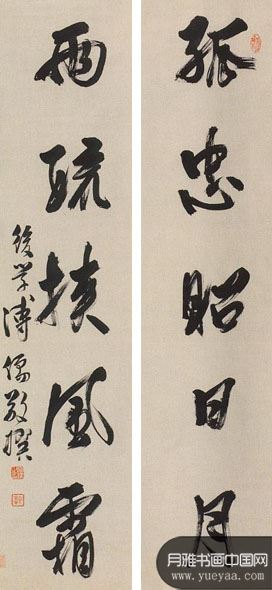 孤忠昭日月
兩疏挾風霜
後學溥儒敬撰
月雅书画中国网
www.yueyaa.com